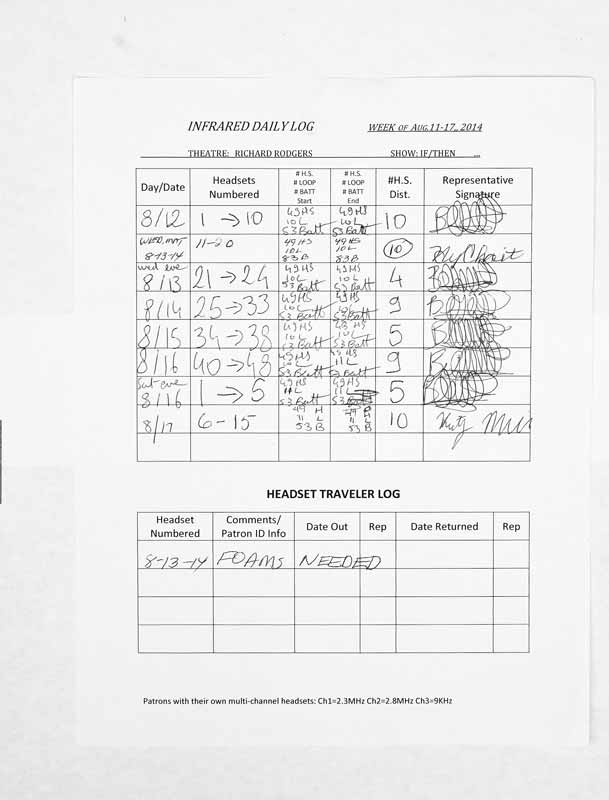 INFRARED DAILY LOG WEEK OF AUG.11-17,, 2014
THEATRE: RICHARD RODGERS SHOW: IF/THEN ...
Day/Date Headsets Numbered # H.S. # LOOP # BATT Start # H.S. # LOOP # BATT End #H.S. Dist. Representative Signature
8/12 1 → 10 49 HS 10 L 53 Batt 49 HS 10 L 53 Batt 10
WED. MAT 8-13-14 11-20 49 HS 10L 83 B 49 HS 10L 83 B 10
wed eve 8/13 21 → 24 49 HS 10 L 53 Batt 49 HS 10 L 53 Batt 4
8/14 25 → 33 49 HS 10L 53 Batt 49 HS 10L 53 Batt 9
8/15 34 → 38 49 HS 10L 53 Batt 10 L 53 Batt 5
8/16 40 → 48 49 HS 10L 53 Batt 49 HS 11 L 53 Batt 9
Sat eve 8/16 1 → 5 49 HS 11 L 53 Batt 49 HS 11 L 53 5
8/17 6-15 49 H 11 L 53 B 49 H 11 L 53 B 10
HEADSET TRAVELER LOG
Headset Numbered Comments/ Patron ID Info Date Out Rep Date Returned Rep
8-13-14 FOAMS NEEDED
Patrons with their own multi-channel headsets: Ch1=2.3MHz Ch2=2.8MHz Ch3=9KHz